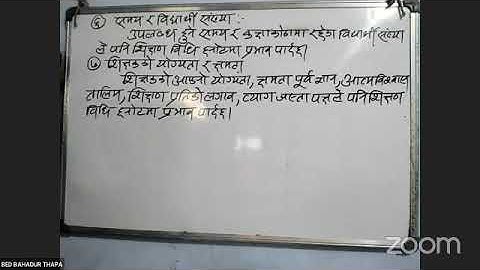 ६) समय र विद्यार्थी संख्या :-
उपलब्ध हुने समय र कक्षाकोठामा रहेका विद्यार्थी संख्या
ले पनि शिक्षण विधि छनोटमा प्रभाव पार्दछ।
७) शिक्षकको योग्यता र क्षमता
शिक्षकको आफ्नो योग्यता, क्षमता पूर्व ज्ञान, आत्मविश्वास
तालिम, शिक्षण प्रतिको लगाव, त्याग जस्ता पक्षले पनि शिक्षण
विधि छनोटमा प्रभाव पार्दछ।
zoom
BED BAHADUR THAPA